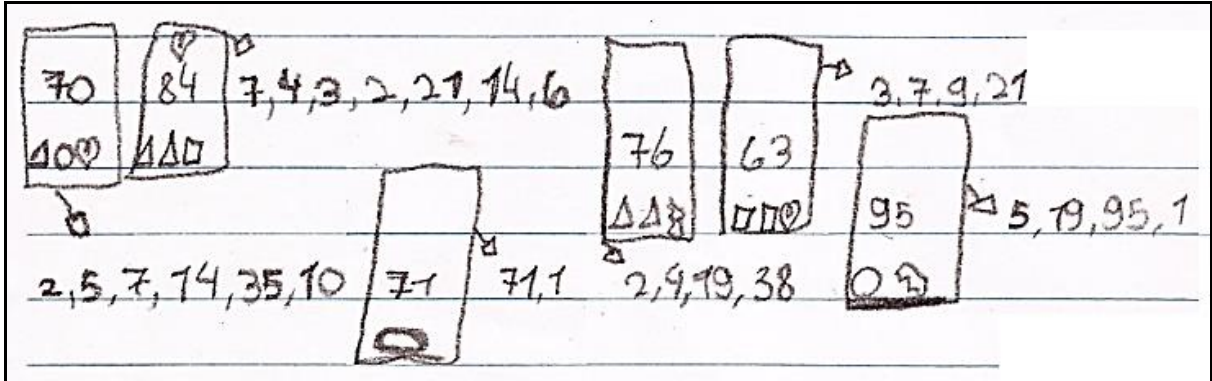 70 84 7,4,3,2,21,14,6
76 63 3,7,9,21
95 5,19,95,1
2,5,7,14,35,10 71 71,1 2,4,19,38